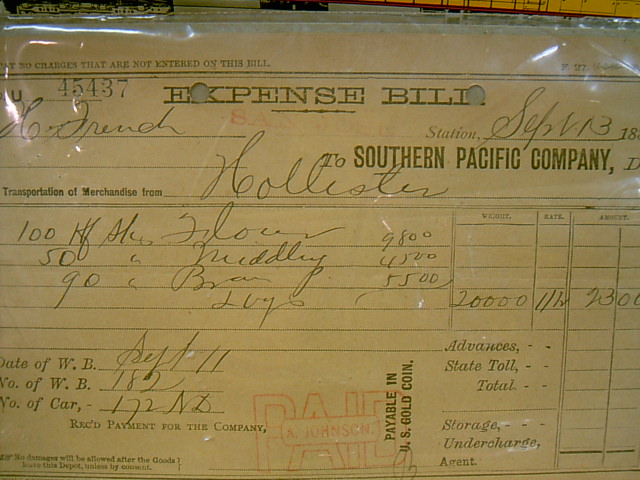 PAY NO CHARGES THAT ARE NOT ENTERED ON THIS BILL.
45437
EXPENSE BILL
H. French
Station, Sept 13 188
To SOUTHERN PACIFIC COMPANY, D
Transportation of Merchandise from Hollister
WEIGHT. RATE. AMOUNT.
100 Hf Sks Flour 9800
50 " Middlg 4500
90 " Bran 5500
20000 23 00
Date of W. B. Sept 11
No. of W. B. 182
No. of Car, - 172
REC'D PAYMENT FOR THE COMPANY,
PAID
A. JOHNSON.
PAYABLE IN
U. S. GOLD COIN.
Advances, - -
State Toll, - -
Total - -
Storage, - - -
Undercharge,
Agent.
No damages will be allowed after the Goods
leave this Depot, unless by consent.